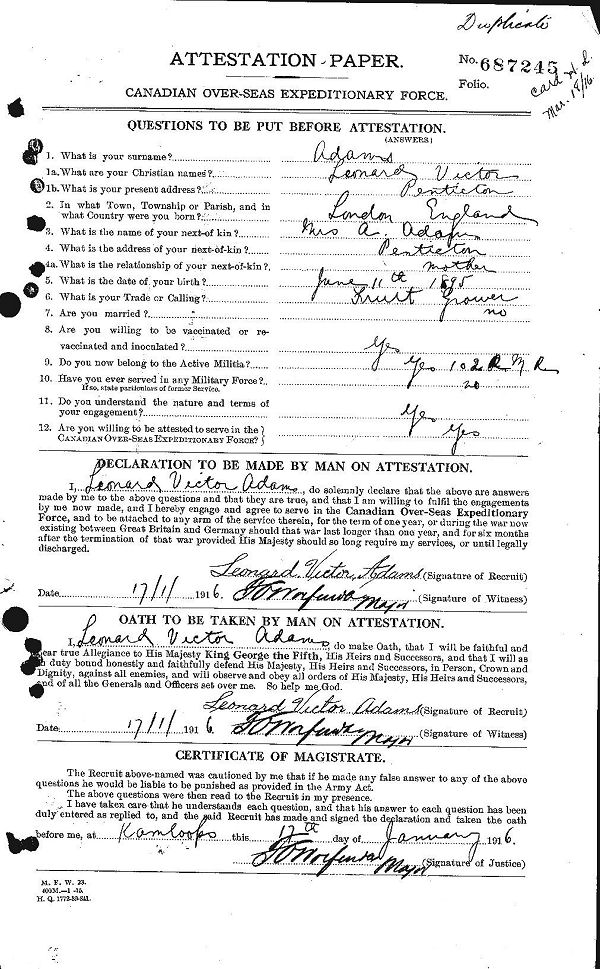 Duplicate
ATTESTATION PAPER.
No. 687245
Folio.
card
Mar. 18/16
CANADIAN OVER-SEAS EXPEDITIONARY FORCE.
QUESTIONS TO BE PUT BEFORE ATTESTATION.
(ANSWERS)
1. What is your surname? Adams
1a. What are your Christian names? Leonard Victor
1b. What is your present address? Penticton
2. In what Town, Township or Parish, and in
what Country were you born? London England
3. What is the name of your next-of kin? Mrs A. Adams
4. What is the address of your next-of-kin? Penticton
4a. What is the relationship of your next-of-kin? mother
5. What is the date of your birth? June 11th 1895
6. What is your Trade or Calling? Fruit Grower
7. Are you married? no
8. Are you willing to be vaccinated or re-
vaccinated and inoculated? Yes
9. Do you now belong to the Active Militia? Yes 102 R M R
10. Have you ever served in any Military Force? no
If so, state particulars of former Service.
11. Do you understand the nature and terms of
your engagement? Yes
12. Are you willing to be attested to serve in the
CANADIAN OVER-SEAS EXPEDITIONARY FORCE? Yes
DECLARATION TO BE MADE BY MAN ON ATTESTATION.
I, Leonard Victor Adams, do solemnly declare that the above are answers
made by me to the above questions and that they are true, and that I am willing to fulfil the engagements
by me now made, and I hereby engage and agree to serve in the Canadian Over-Seas Expeditionary
Force, and to be attached to any arm of the service therein, for the term of one year, or during the war now
existing between Great Britain and Germany should that war last longer than one year, and for six months
after the termination of that war provided His Majesty should so long require my services, or until legally
discharged.
Leonard Victor Adams (Signature of Recruit)
Date 17/1/ 1916 Major (Signature of Witness)
OATH TO BE TAKEN BY MAN ON ATTESTATION.
I, Leonard Victor Adams, do make Oath, that I will be faithful and
bear true Allegiance to His Majesty King George the Fifth, His Heirs and Successors, and that I will as
in duty bound honestly and faithfully defend His Majesty, His Heirs and Successors, in Person, Crown and
Dignity, against all enemies, and will observe and obey all orders of His Majesty, His Heirs and Successors,
and of all the Generals and Officers set over me. So help me God.
Leonard Victor Adams (Signature of Recruit)
Date 17/1/ 1916 Major (Signature of Witness)
CERTIFICATE OF MAGISTRATE.
The Recruit above-named was cautioned by me that if he made any false answer to any of the above
questions he would be liable to be punished as provided in the Army Act.
The above questions were then read to the Recruit in my presence.
I have taken care that he understands each question, and that his answer to each question has been
duly entered as replied to, and the said Recruit has made and signed the declaration and taken the oath
before me, at Kamloops this 17th day of January 1916.
Major (Signature of Justice)
M. F. W. 23.
400M.-1-15.
H. Q. 1772-39-841.